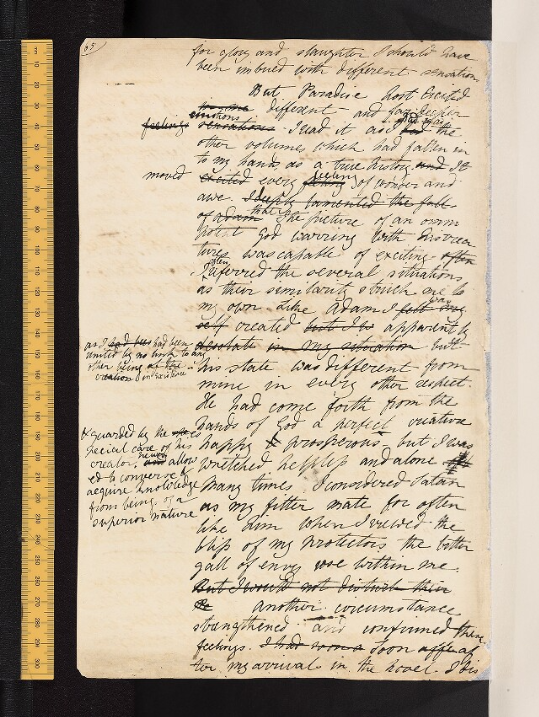 65
for glory and slaughter I should have
been imbued with different sensation
But Paradise Lost Excited
different and far deeper
emotions
feelings sensations I read it as I had the
other volumes which had fallen in
to my hands as a true history and It
moved excited every feeling of wonder and
awe. I deeply lamented the fall
of Adam that the picture of an omni
potent God warring with his crea
tures was capable of exciting often
often
I referred the several situations
as their similarity struck me to
my own. Like Adam I felt my
was
self created but I was apparently
as I had been had been
united by no link to any
other being
creation in existence
desolate in my situation but
his state was different from
mine in every other respect.
He had come forth from the
hands of God a perfect creature
happy & prosperous but I was
& guarded by the
special care of his
creator, and allow
ed to converse &
acquire knowledge
from beings of a
superior nature
wretched helpless and alone
Many times I considered Satan
as my fitter mate for often
like him when I viewed the
bliss of my Protectors the bitter
gall of envy rose within me.
But I would not disturb their
another circumstance
strengthened and confirmed these
feelings. Soon after af
ter my arrival in the hovel I dis